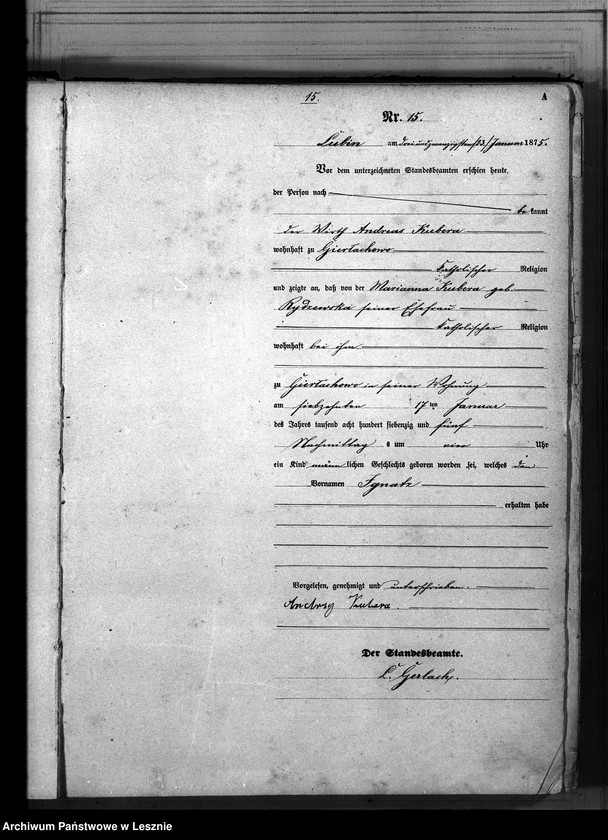 15.
A
Nr. 15.
Lubin am dreiundzwanzigsten /23/ Januar 1875.
Vor dem unterzeichneten Standesbeamten erschien heute,
der Person nach
be kannt
der Wirth Andreas Kubera
wohnhaft zu Gierlachowo
Katholischer Religion
und zeigte an, daß von der Marianna Kubera geb.
Rydzewska seiner Ehefrau
Katholischer Religion
wohnhaft bei ihm
zu Gierlachowo in seiner Wohnung
am siebzehnten 17ten Januar
des Jahres tausend acht hundert siebenzig und fünf
Nachmittag s um vier Uhr
ein Kind männ lichen Geschlechts geboren worden sei, welches den
Vornamen Ignatz
erhalten habe
Vorgelesen, genehmigt und unterschrieben.
Andrzy Kubera.
Der Standesbeamte.
L. Gerlach.
Archiwum Państwowe w Lesznie